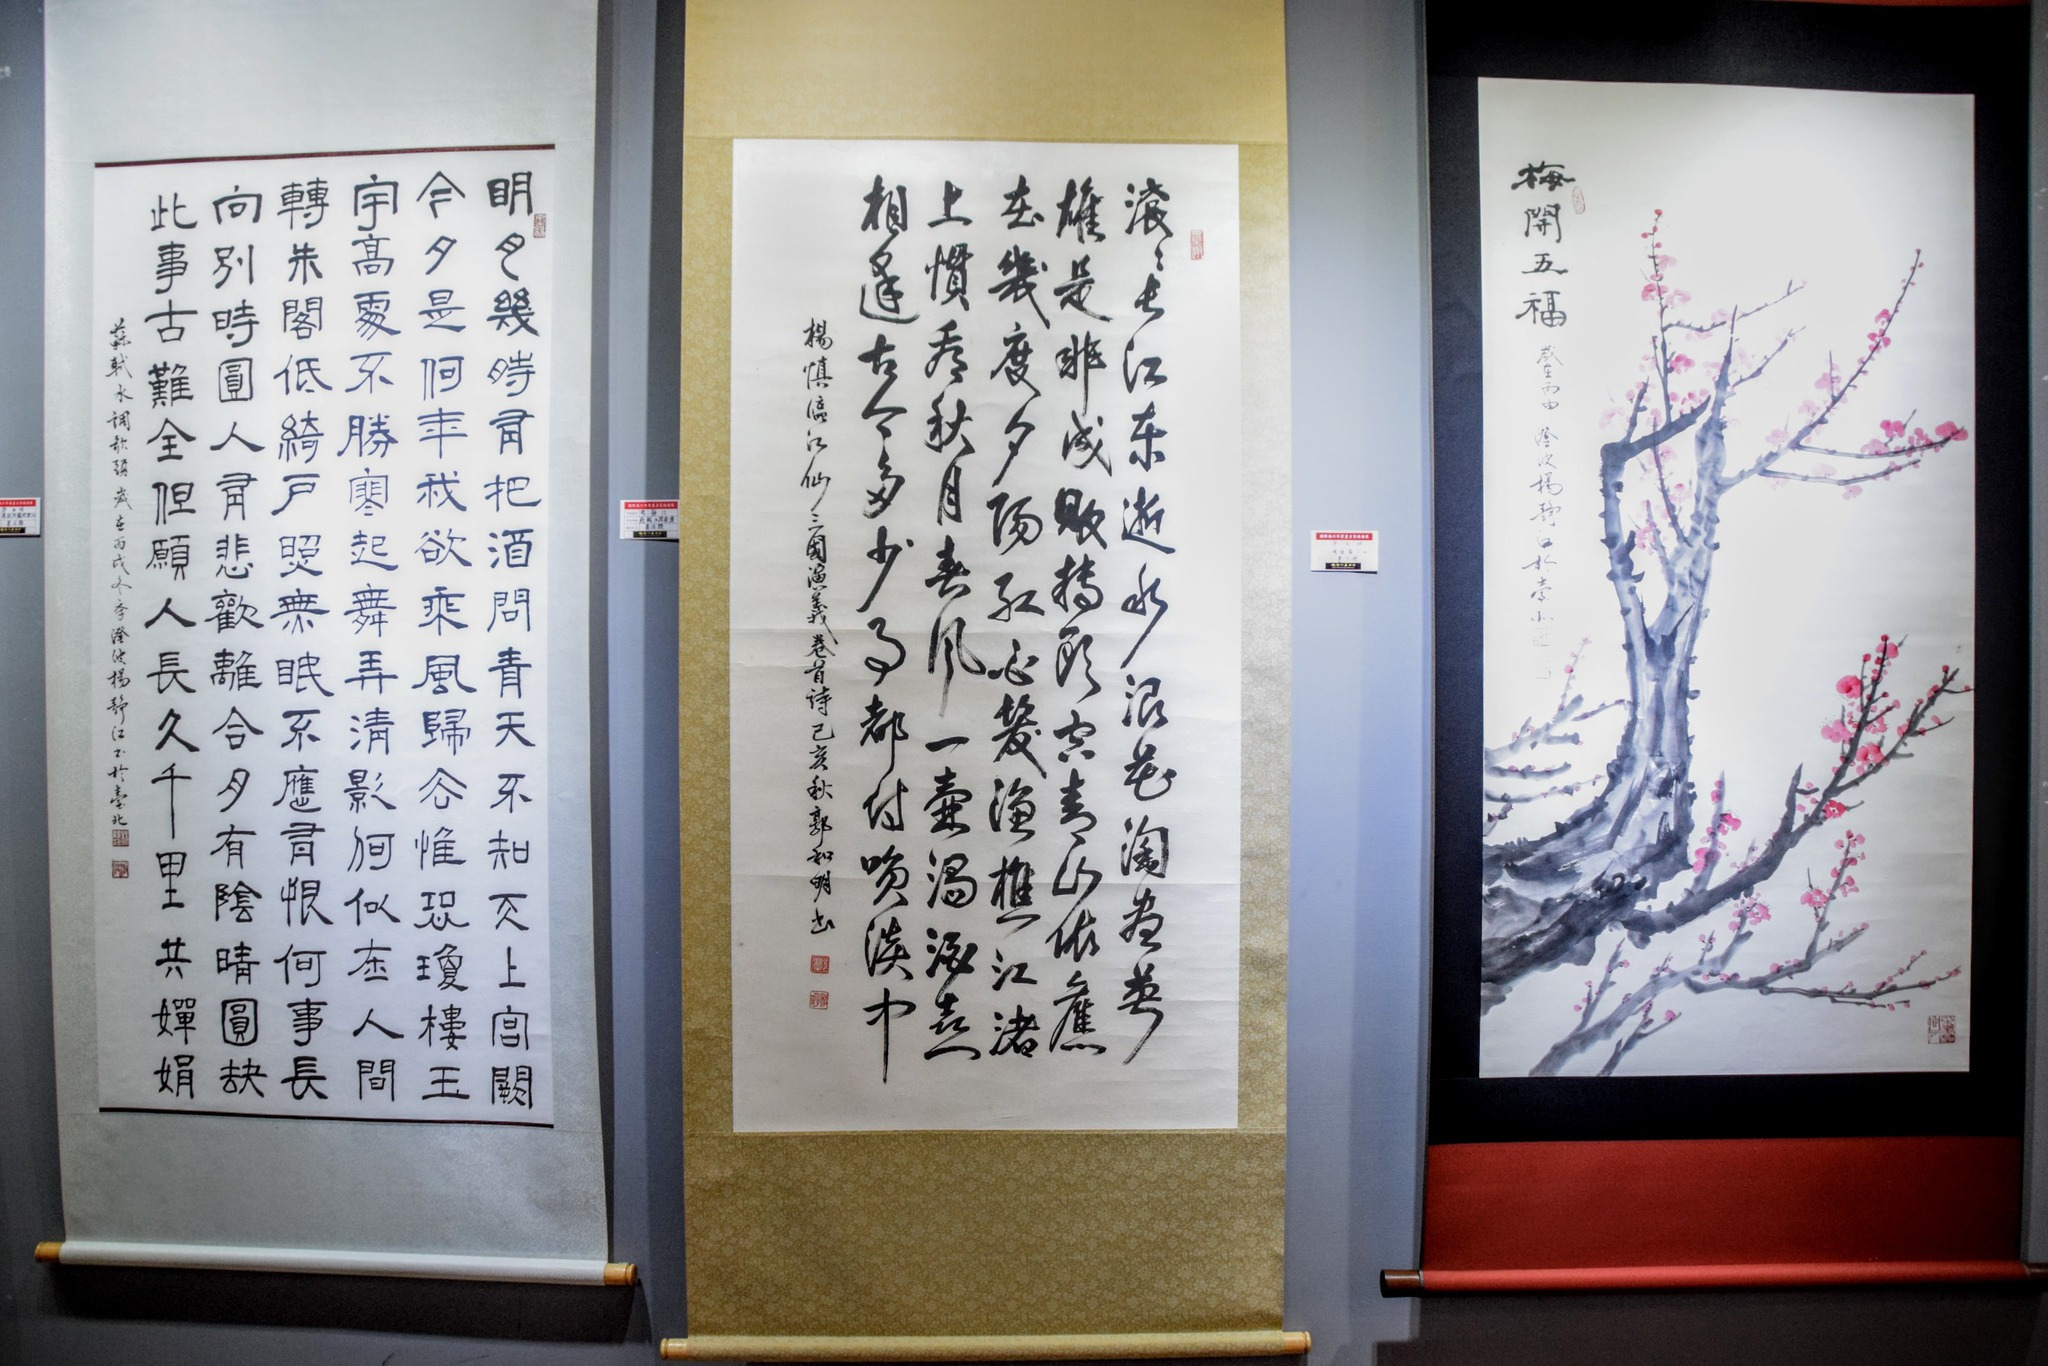 明月幾時有把酒問青天不知天上宮闕
今夕是何年我欲乘風歸去惟恐瓊樓玉
宇高處不勝寒起舞弄清影何似在人間
轉朱閣低綺戶照無眠不應有恨何事長
向別時圓人有悲歡離合月有陰晴圓缺
此事古難全但願人長久千里共嬋娟
蘇軾水調歌頭歲在丙戌冬季澄波楊靜江書於臺北
滾滾長江東逝水浪花淘盡英
雄是非成敗轉頭空青山依舊
在幾度夕陽紅白髮漁樵江渚
上慣看秋月春風一壺濁酒喜
相逢古今多少事都付笑談中
楊慎臨江仙三國演義卷首詩己亥秋郭和明書
梅開五福
澄波楊靜江於臺北